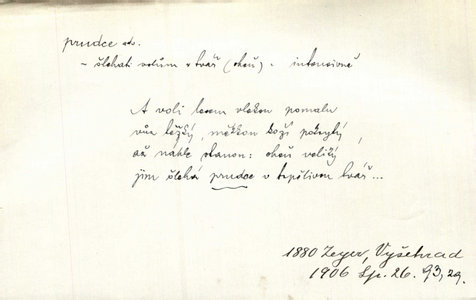 prudce adv.
- šlehati volům v tvář (oheň) - intensivně
A voli lesem vlekou pomalu
vůz těžký, měkkou koží pokrytý,
až náhle stanou: oheň veliký
jim šlehá prudce v trpělivou tvář...
1880 Zeyer, Vyšehrad
1906 Sp. 26. 93, 29.